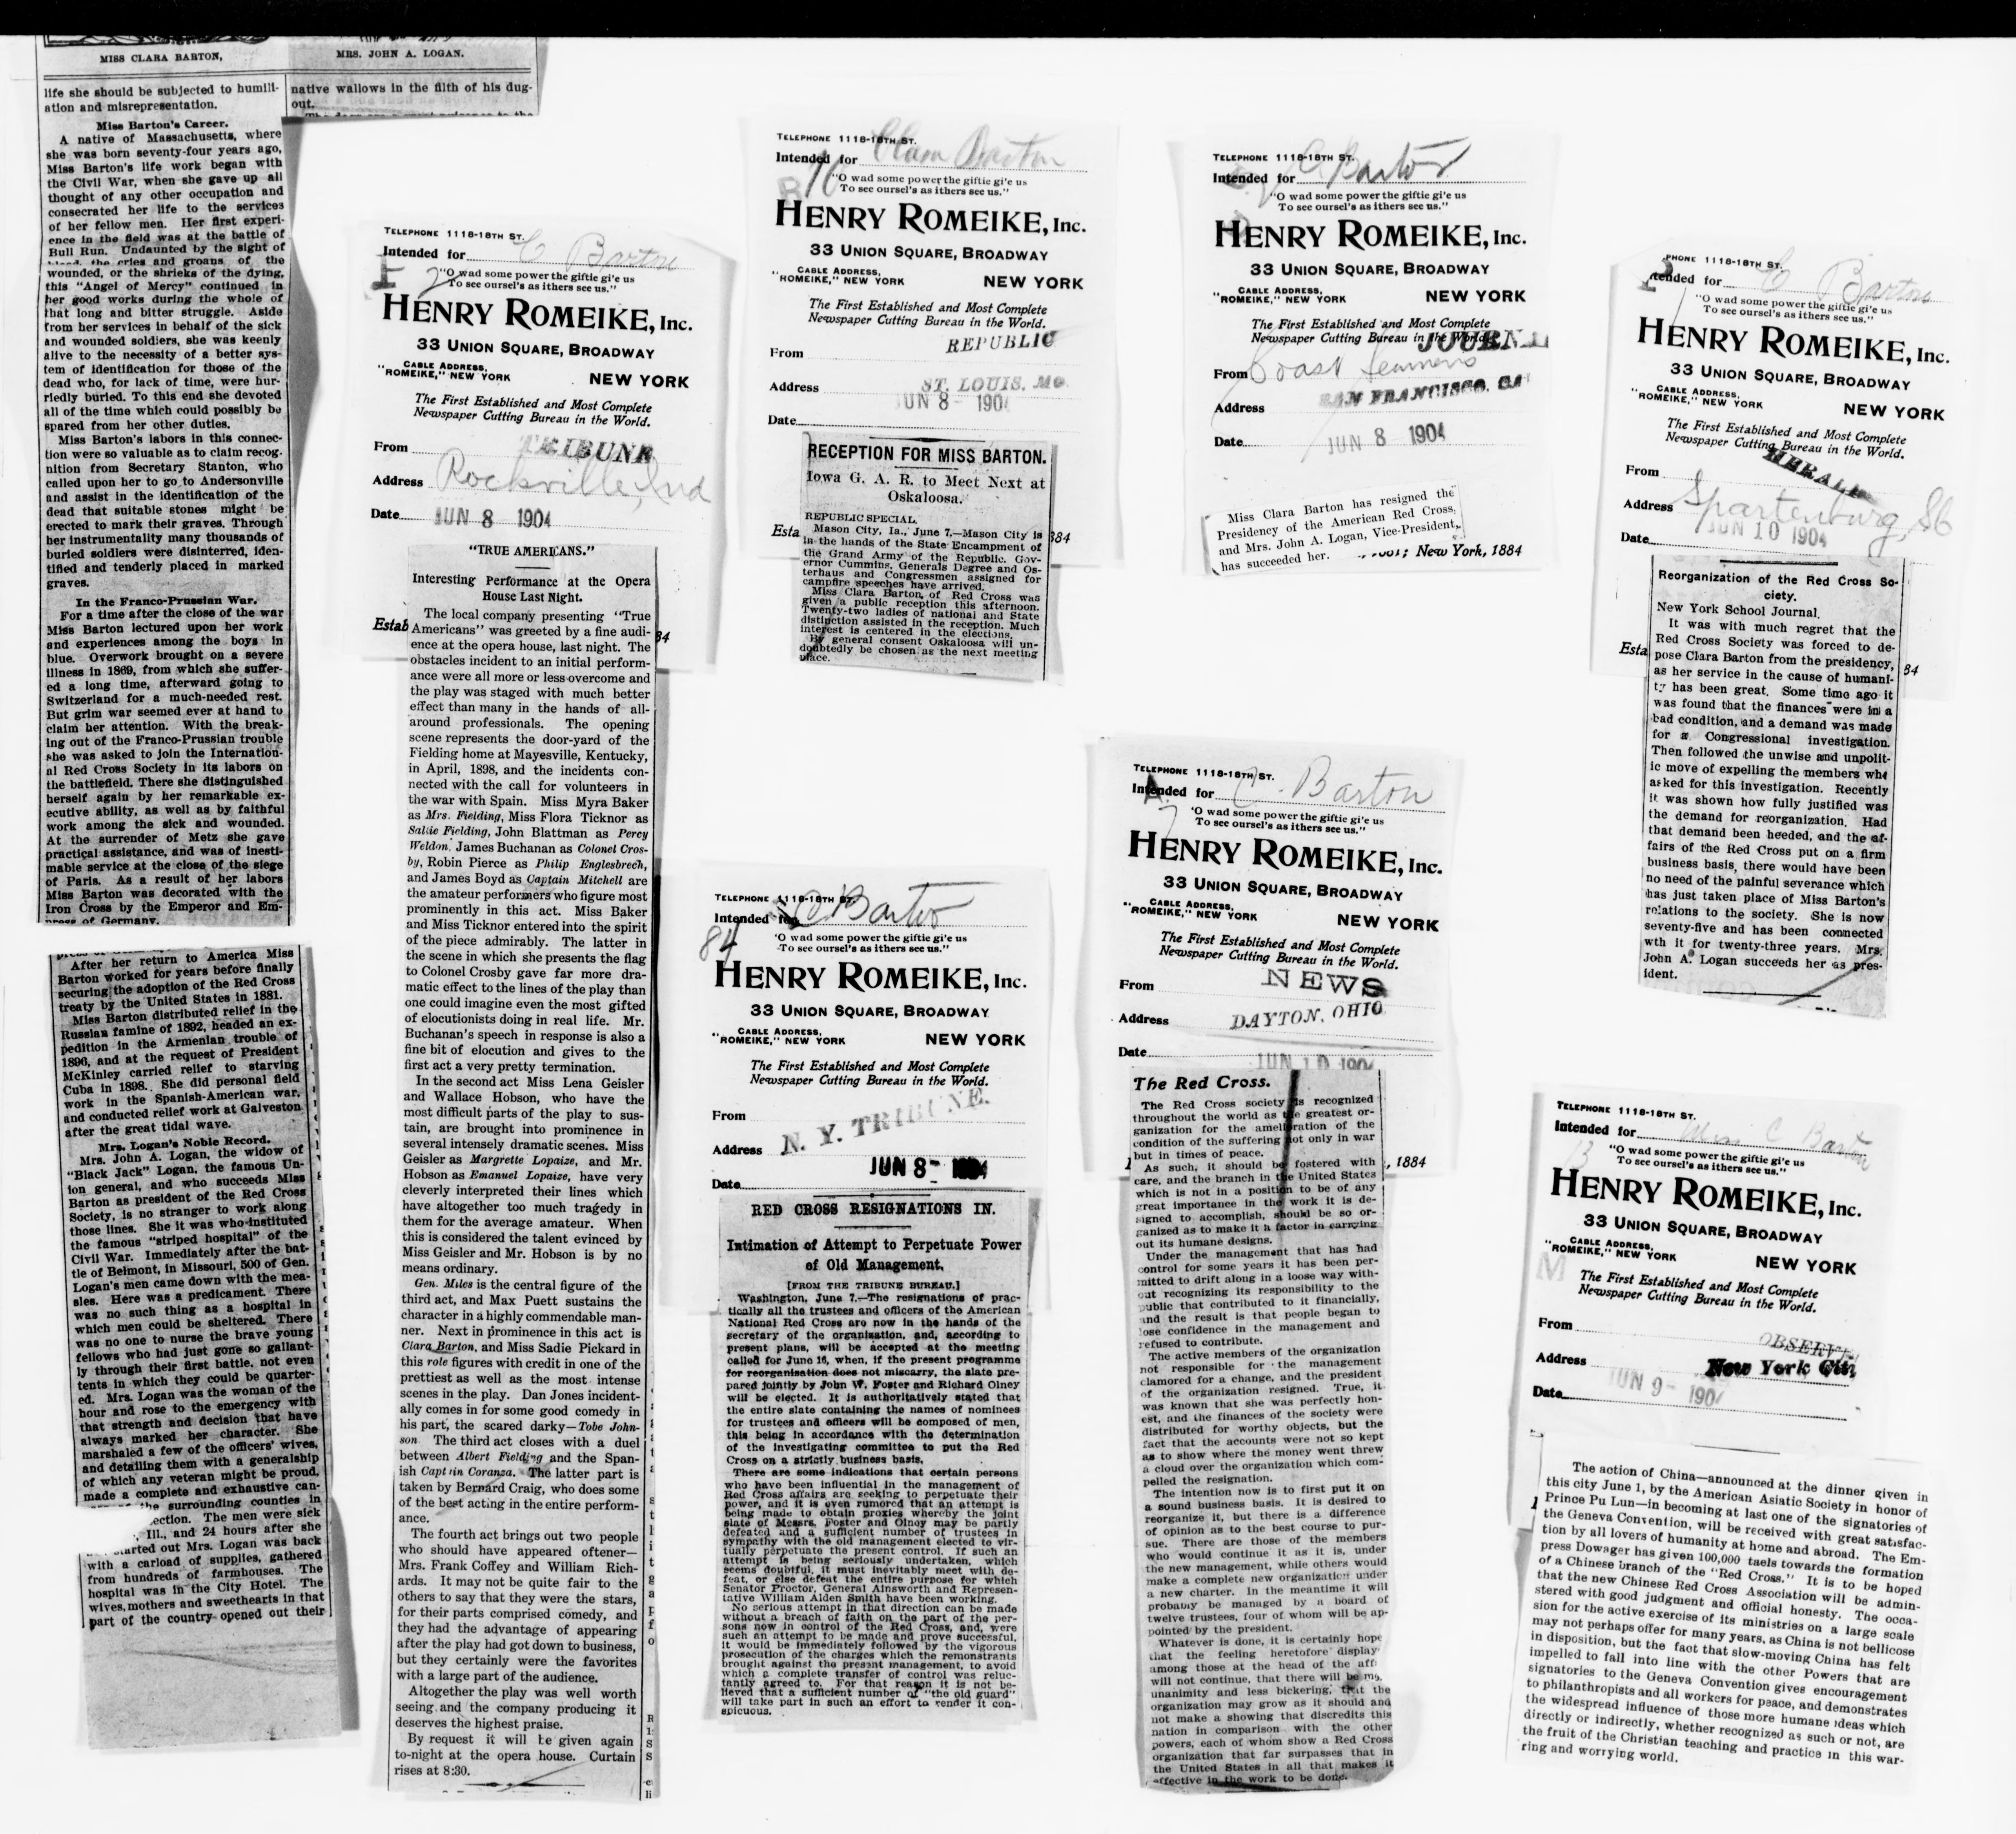 MISS CLARA BARTON,
MRS. JOHN A. LOGAN.
life she should be subjected to humili-
ation and misrepresentation.
Miss Barton's Career.
A native of Massachusetts, where
she was born seventy-four years ago,
Miss Barton's life work began with
the Civil War, when she gave up all
thought of any other occupation and
consecrated her life to the services
of her fellow men. Her first experi-
ence in the field was at the battle of
Bull Run. Undaunted by the sight of
the cries and groans of the
wounded, or the shrieks of the dying,
this "Angel of Mercy" continued in
her good works during the whole of
that long and bitter struggle. Aside
from her services in behalf of the sick
and wounded soldiers, she was keenly
alive to the necessity of a better sys-
tem of identification for those of the
dead who, for lack of time, were hur-
riedly buried. To this end she devoted
all of the time which could possibly be
spared from her other duties.
Miss Barton's labors in this connec-
tion were so valuable as to claim recog-
nition from Secretary Stanton, who
called upon her to go to Andersonville
and assist in the identification of the
dead that suitable stones might be
erected to mark their graves. Through
her instrumentality many thousands of
buried soldiers were disinterred, iden-
tified and tenderly placed in marked
graves.
In the Franco-Prussian War.
For a time after the close of the war
Miss Barton lectured upon her work
and experiences among the boys in
blue. Overwork brought on a severe
illness in 1869, from which she suffer-
ed a long time, afterward going to
Switzerland for a much-needed rest.
But grim war seemed ever at hand to
claim her attention. With the break-
ing out of the Franco-Prussian trouble
she was asked to join the Internation-
al Red Cross Society in its labors on
the battlefield. There she distinguished
herself again by her remarkable ex-
ecutive ability, as well as by faithful
work among the sick and wounded.
At the surrender of Metz she gave
practical assistance, and was of inesti-
mable service at the close of the siege
of Paris. As a result of her labors
Miss Barton was decorated with the
Iron Cross by the Emperor and Em-
press of Germany.
After her return to America Miss
Barton worked for years before finally
securing the adoption of the Red Cross
treaty by the United States in 1881.
Miss Barton distributed relief in the
Russian famine of 1892, headed an ex-
pedition in the Armenian trouble of
1896, and at the request of President
McKinley carried relief to starving
Cuba in 1898. She did personal field
work in the Spanish-American war,
and conducted relief work at Galveston
after the great tidal wave.
Mrs. Logan's Noble Record.
Mrs. John A. Logan, the widow of
"Black Jack" Logan, the famous Un-
ion general, and who succeeds Miss
Barton as president of the Red Cross
Society, is no stranger to work along
those lines. She it was who instituted
the famous "striped hospital" of the
Civil War. Immediately after the bat-
tle of Belmont, in Missouri, 500 of Gen.
Logan's men came down with the mea-
sles. Here was a predicament. There
was no such thing as a hospital in
which men could be sheltered. There
was no one to nurse the brave young
fellows who had just gone so gallant-
ly through their first battle, not even
tents in which they could be quarter-
ed. Mrs. Logan was the woman of the
hour and rose to the emergency with
that strength and decision that have
always marked her character. She
marshaled a few of the officers' wives,
and detailing them with a generalship
of which any veteran might be proud,
made a complete and exhaustive can-
the surrounding counties in
ection. The men were sick
Ill., and 24 hours after she
started out Mrs. Logan was back
with a carload of supplies, gathered
from hundreds of farmhouses. The
hospital was in the City Hotel. The
wives, mothers and sweethearts in that
part of the country opened out their
native wallows in the filth of his dug-
out.
TELEPHONE 1118-18TH ST.
Intended for C Barton
"O wad some power the giftie gi'e us
To see oursel's as ithers see us."
HENRY ROMEIKE, Inc.
33 UNION SQUARE, BROADWAY
CABLE ADDRESS,
"ROMEIKE," NEW YORK
NEW YORK
The First Established and Most Complete
Newspaper Cutting Bureau in the World.
From TRIBUNE
Address Rockville, Ind
Date JUN 8 1904
Estab
84
"TRUE AMERICANS."
Interesting Performance at the Opera
House Last Night.
The local company presenting "True
Americans" was greeted by a fine audi-
ence at the opera house, last night. The
obstacles incident to an initial perform-
ance were all more or less overcome and
the play was staged with much better
effect than many in the hands of all-
around professionals. The opening
scene represents the door-yard of the
Fielding home at Mayesville, Kentucky,
in April, 1898, and the incidents con-
nected with the call for volunteers in
the war with Spain. Miss Myra Baker
as Mrs. Fielding, Miss Flora Ticknor as
Sallie Fielding, John Blattman as Percy
Weldon, James Buchanan as Colonel Cros-
by, Robin Pierce as Philip Englesbrech,
and James Boyd as Captain Mitchell are
the amateur performers who figure most
prominently in this act. Miss Baker
and Miss Ticknor entered into the spirit
of the piece admirably. The latter in
the scene in which she presents the flag
to Colonel Crosby gave far more dra-
matic effect to the lines of the play than
one could imagine even the most gifted
of elocutionists doing in real life. Mr.
Buchanan's speech in response is also a
fine bit of elocution and gives to the
first act a very pretty termination.
In the second act Miss Lena Geisler
and Wallace Hobson, who have the
most difficult parts of the play to sus-
tain, are brought into prominence in
several intensely dramatic scenes. Miss
Geisler as Margrette Lopaize, and Mr.
Hobson as Emanuel Lopaize, have very
cleverly interpreted their lines which
have altogether too much tragedy in
them for the average amateur. When
this is considered the talent evinced by
Miss Geisler and Mr. Hobson is by no
means ordinary.
Gen. Miles is the central figure of the
third act, and Max Puett sustains the
character in a highly commendable man-
ner. Next in prominence in this act is
Clara Barton, and Miss Sadie Pickard in
this role figures with credit in one of the
prettiest as well as the most intense
scenes in the play. Dan Jones incident-
ally comes in for some good comedy in
his part, the scared darky—Tobe John-
son. The third act closes with a duel
between Albert Fielding and the Span-
ish Captain Coranza. The latter part is
taken by Bernard Craig, who does some
of the best acting in the entire perform-
ance.
The fourth act brings out two people
who should have appeared oftener—
Mrs. Frank Coffey and William Rich-
ards. It may not be quite fair to the
others to say that they were the stars,
for their parts comprised comedy, and
they had the advantage of appearing
after the play had got down to business,
but they certainly were the favorites
with a large part of the audience.
Altogether the play was well worth
seeing and the company producing it
deserves the highest praise.
By request it will be given again
to-night at the opera house. Curtain
rises at 8:30.
TELEPHONE 1118-18TH ST.
Intended for Clara Barton
"O wad some power the giftie gi'e us
To see oursel's as ithers see us."
HENRY ROMEIKE, Inc.
33 UNION SQUARE, BROADWAY
CABLE ADDRESS,
"ROMEIKE," NEW YORK
NEW YORK
The First Established and Most Complete
Newspaper Cutting Bureau in the World.
From REPUBLIC
Address ST. LOUIS, MO
JUN 8 - 1904
Date
RECEPTION FOR MISS BARTON.
Iowa G. A. R. to Meet Next at
Oskaloosa.
REPUBLIC SPECIAL.
Esta
884
Mason City, Ia., June 7.—Mason City is
in the hands of the State Encampment of
the Grand Army of the Republic. Gov-
ernor Cummins, Generals Degree and Os-
terhaus and Congressmen assigned for
campfire speeches have arrived.
Miss Clara Barton, of Red Cross was
given a public reception this afternoon.
Twenty-two ladies of national and State
distinction assisted in the reception. Much
interest is centered in the elections.
By general consent Oskaloosa will un-
doubtedly be chosen as the next meeting
place.
TELEPHONE 1118-18TH ST.
Intended for C Barton
84
"O wad some power the giftie gi'e us
To see oursel's as ithers see us."
HENRY ROMEIKE, Inc.
33 UNION SQUARE, BROADWAY
CABLE ADDRESS,
"ROMEIKE," NEW YORK
NEW YORK
The First Established and Most Complete
Newspaper Cutting Bureau in the World.
From
Address N. Y. TRIBUNE.
JUN 8- 1904
Date
RED CROSS RESIGNATIONS IN.
Intimation of Attempt to Perpetuate Power
of Old Management.
[FROM THE TRIBUNE BUREAU.]
Washington, June 7.—The resignations of prac-
tically all the trustees and officers of the American
National Red Cross are now in the hands of the
secretary of the organization, and, according to
present plans, will be accepted at the meeting
called for June 16, when, if the present programme
for reorganisation does not miscarry, the slate pre-
pared jointly by John W. Foster and Richard Olney
will be elected. It is authoritatively stated that
the entire slate containing the names of nominees
for trustees and officers will be composed of men,
this being in accordance with the determination
of the investigating committee to put the Red
Cross on a strictly business basis.
There are some indications that certain persons
who have been influential in the management of
Red Cross affairs are seeking to perpetuate their
power, and it is even rumored that an attempt is
being made to obtain proxies whereby the joint
slate of Messrs. Foster and Olney may be partly
defeated and a sufficient number of trustees in
sympathy with the old management elected to vir-
tually perpetuate the present control. If such an
attempt is being seriously undertaken, which
seems doubtful, it must inevitably meet with de-
feat, or else defeat the entire purpose for which
Senator Proctor, General Ainsworth and Represen-
tative William Alden Smith have been working.
No serious attempt in that direction can be made
without a breach of faith on the part of the per-
sons now in control of the Red Cross, and, were
such an attempt to be made and prove successful,
it would be immediately followed by the vigorous
prosecution of the charges which the remonstrants
brought against the present management, to avoid
which a complete transfer of control was reluc-
tantly agreed to. For that reason it is not be-
lieved that a sufficient number of "the old guard"
will take part in such an effort to render it con-
spicuous.
TELEPHONE 1118-18TH ST.
Intended for C Barton
"O wad some power the giftie gi'e us
To see oursel's as ithers see us."
HENRY ROMEIKE, Inc.
33 UNION SQUARE, BROADWAY
CABLE ADDRESS,
"ROMEIKE," NEW YORK
NEW YORK
The First Established and Most Complete
Newspaper Cutting Bureau in the World.
JOURNAL
From Coast Seamens
Address SAN FRANCISCO, CAL
Date JUN 8 1904
Miss Clara Barton has resigned the
Presidency of the American Red Cross,
and Mrs. John A. Logan, Vice-President,
has succeeded her.
New York, 1884
TELEPHONE 1118-18TH ST.
Intended for C. Barton
'O wad some power the giftie gi'e us
To see oursel's as ithers see us."
HENRY ROMEIKE, Inc.
33 UNION SQUARE, BROADWAY
CABLE ADDRESS,
"ROMEIKE," NEW YORK
NEW YORK
The First Established and Most Complete
Newspaper Cutting Bureau in the World.
From NEWS
Address DAYTON, OHIO
Date JUN 10 1904
The Red Cross.
The Red Cross society is recognized
throughout the world as the greatest or-
ganization for the amelioration of the
condition of the suffering not only in war
but in times of peace.
, 1884
As such, it should be fostered with
care, and the branch in the United States
which is not in a position to be of any
great importance in the work it is de-
signed to accomplish, should be so or-
ganized as to make it a factor in carrying
out its humane designs.
Under the management that has had
control for some years it has been per-
mitted to drift along in a loose way with-
out recognizing its responsibility to the
public that contributed to it financially,
and the result is that people began to
lose confidence in the management and
refused to contribute.
The active members of the organization
not responsible for the management
clamored for a change, and the president
of the organization resigned. True, it
was known that she was perfectly hon-
est, and the finances of the society were
distributed for worthy objects, but the
fact that the accounts were not so kept
as to show where the money went threw
a cloud over the organization which com-
pelled the resignation.
The intention now is to first put it on
a sound business basis. It is desired to
reorganize it, but there is a difference
of opinion as to the best course to pur-
sue. There are those of the members
who would continue it as it is, under
the new management, while others would
make a complete new organization under
a new charter. In the meantime it will
probably be managed by a board of
twelve trustees, four of whom will be ap-
pointed by the president.
Whatever is done, it is certainly hope
that the feeling heretofore display
among those at the head of the aff
will not continue, that there will be mo
unanimity and less bickering, that the
organization may grow as it should and
not make a showing that discredits this
nation in comparison with the other
powers, each of whom show a Red Cross
organization that far surpasses that in
the United States in all that makes it
effective in the work to be done.
PHONE 1118-18TH ST.
tended for C Barton
"O wad some power the giftie gi'e us
To see oursel's as ithers see us."
HENRY ROMEIKE, Inc.
33 UNION SQUARE, BROADWAY
CABLE ADDRESS,
"ROMEIKE," NEW YORK
NEW YORK
The First Established and Most Complete
Newspaper Cutting Bureau in the World.
From HERALD
Address Spartenburg, SC
JUN 10 1904
Date
Reorganization of the Red Cross So-
ciety.
New York School Journal.
It was with much regret that the
Red Cross Society was forced to de-
Esta
84
pose Clara Barton from the presidency,
as her service in the cause of humani-
ty has been great. Some time ago it
was found that the finances were in a
bad condition, and a demand was made
for a Congressional investigation.
Then followed the unwise and unpolit-
ic move of expelling the members who
asked for this investigation. Recently
it was shown how fully justified was
the demand for reorganization. Had
that demand been heeded, and the af-
fairs of the Red Cross put on a firm
business basis, there would have been
no need of the painful severance which
has just taken place of Miss Barton's
relations to the society. She is now
seventy-five and has been connected
wth it for twenty-three years. Mrs.
John A. Logan succeeds her as pres-
ident.
TELEPHONE 1118-18TH ST.
Intended for Miss C Barton
"O wad some power the giftie gi'e us
To see oursel's as ithers see us."
HENRY ROMEIKE, Inc.
33 UNION SQUARE, BROADWAY
CABLE ADDRESS,
"ROMEIKE," NEW YORK
NEW YORK
The First Established and Most Complete
Newspaper Cutting Bureau in the World.
From OBSERVER
Address New York City,
Date JUN 9- 1904
The action of China—announced at the dinner given in
this city June 1, by the American Asiatic Society in honor of
Prince Pu Lun—in becoming at last one of the signatories of
the Geneva Convention, will be received with great satisfac-
tion by all lovers of humanity at home and abroad. The Em-
press Dowager has given 100,000 taels towards the formation
of a Chinese branch of the "Red Cross." It is to be hoped
that the new Chinese Red Cross Association will be admin-
istered with good judgment and official honesty. The occa-
sion for the active exercise of its ministries on a large scale
may not perhaps offer for many years, as China is not bellicose
in disposition, but the fact that slow-moving China has felt
impelled to fall into line with the other Powers that are
signatories to the Geneva Convention gives encouragement
to philanthropists and all workers for peace, and demonstrates
the widespread influence of those more humane ideas which
directly or indirectly, whether recognized as such or not, are
the fruit of the Christian teaching and practice in this war-
ring and worrying world.